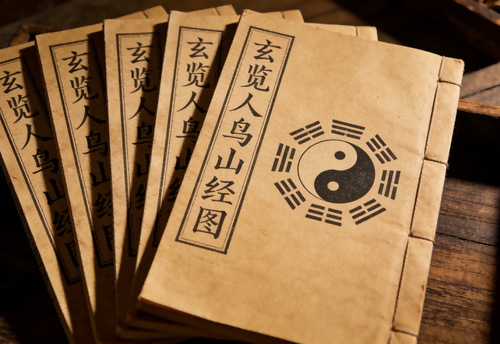 玄览人鸟山经图
玄览人鸟山经图
玄览人鸟山经图
玄览人鸟山经图
玄览人鸟山经图